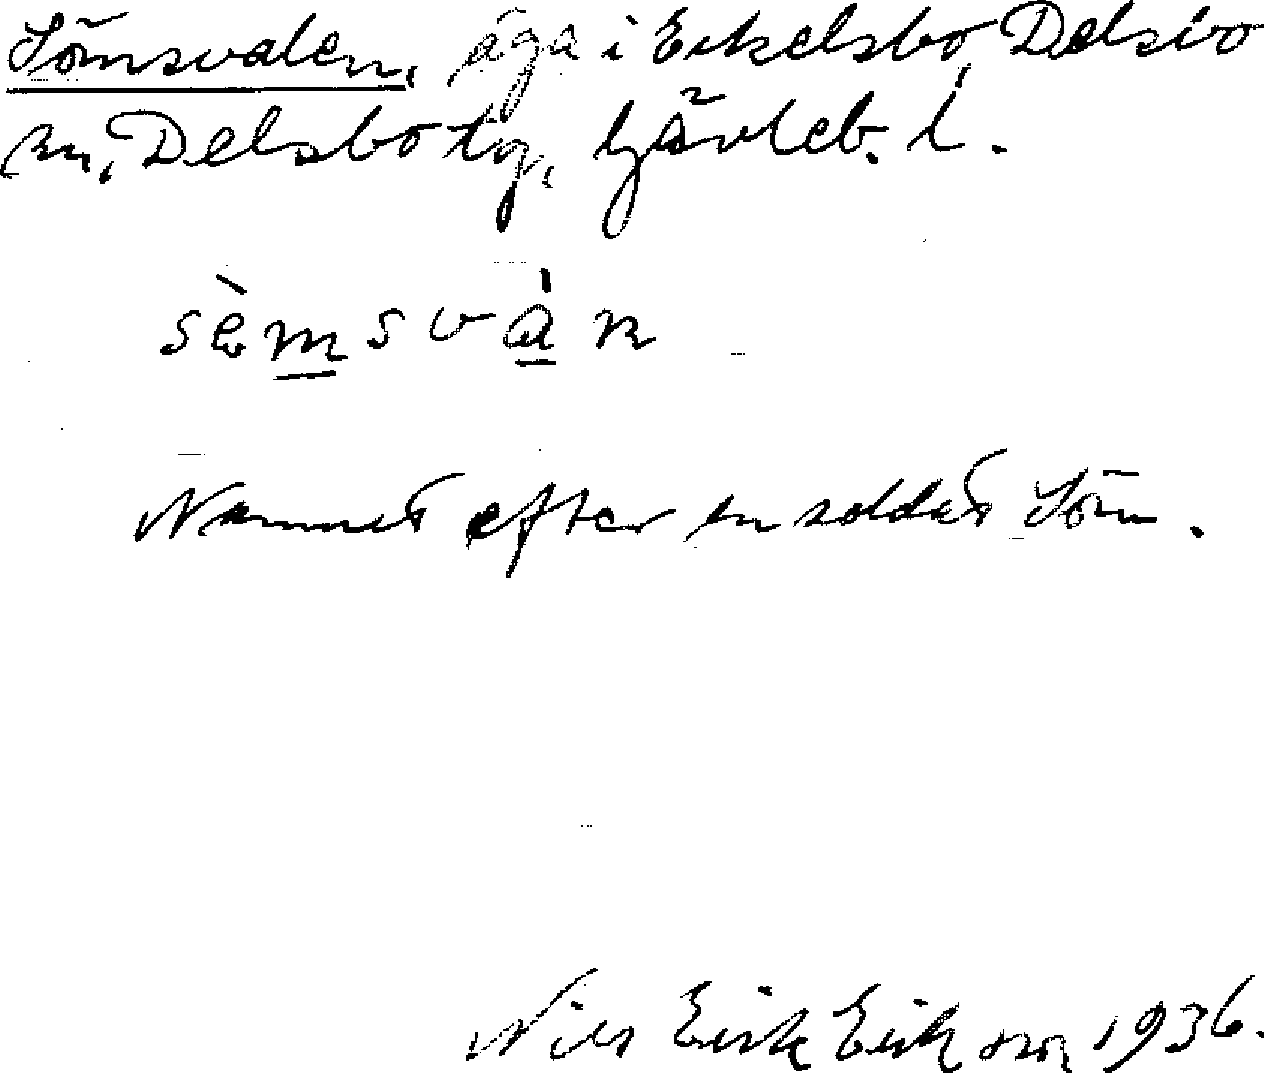 Sömsvalen, äga i Eckelsbo, Delsbo
sn, Delsbo tg, Gävleb. l.
sèmsvàn
Namnet efter en soldat Söm.
Nils Erik Erikson 1936.